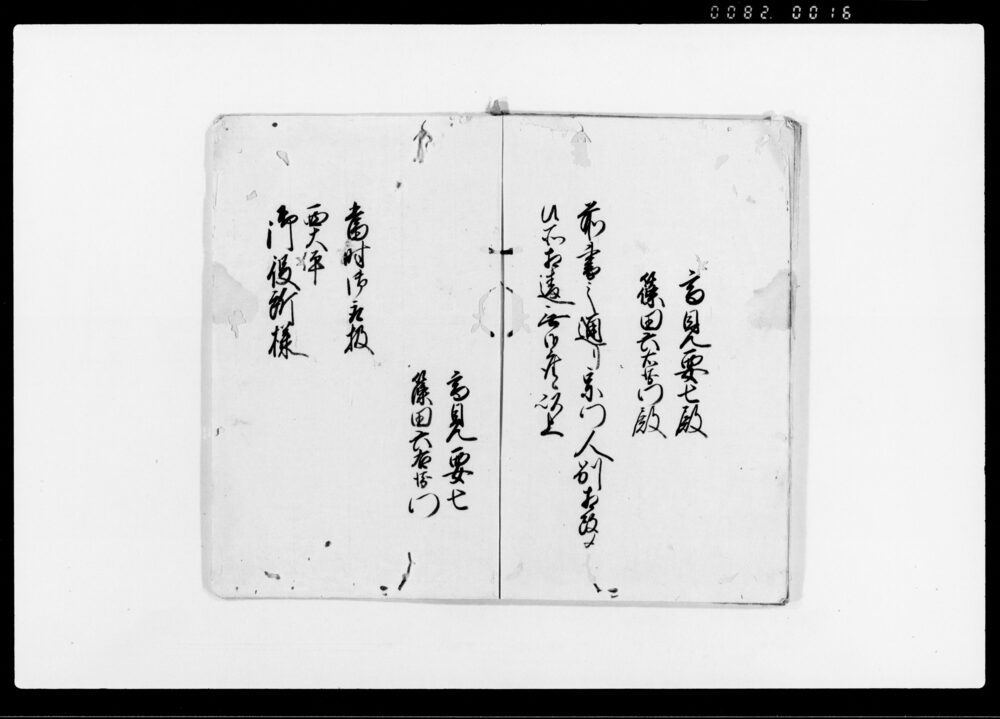 0082.0016
高見要七殿
篠田六右衛門殿
前書之通り宗門人別相改メ
候所相違無御座候以上
高見要七
篠田六右衛門
當時御取扱
西大平
御役所様